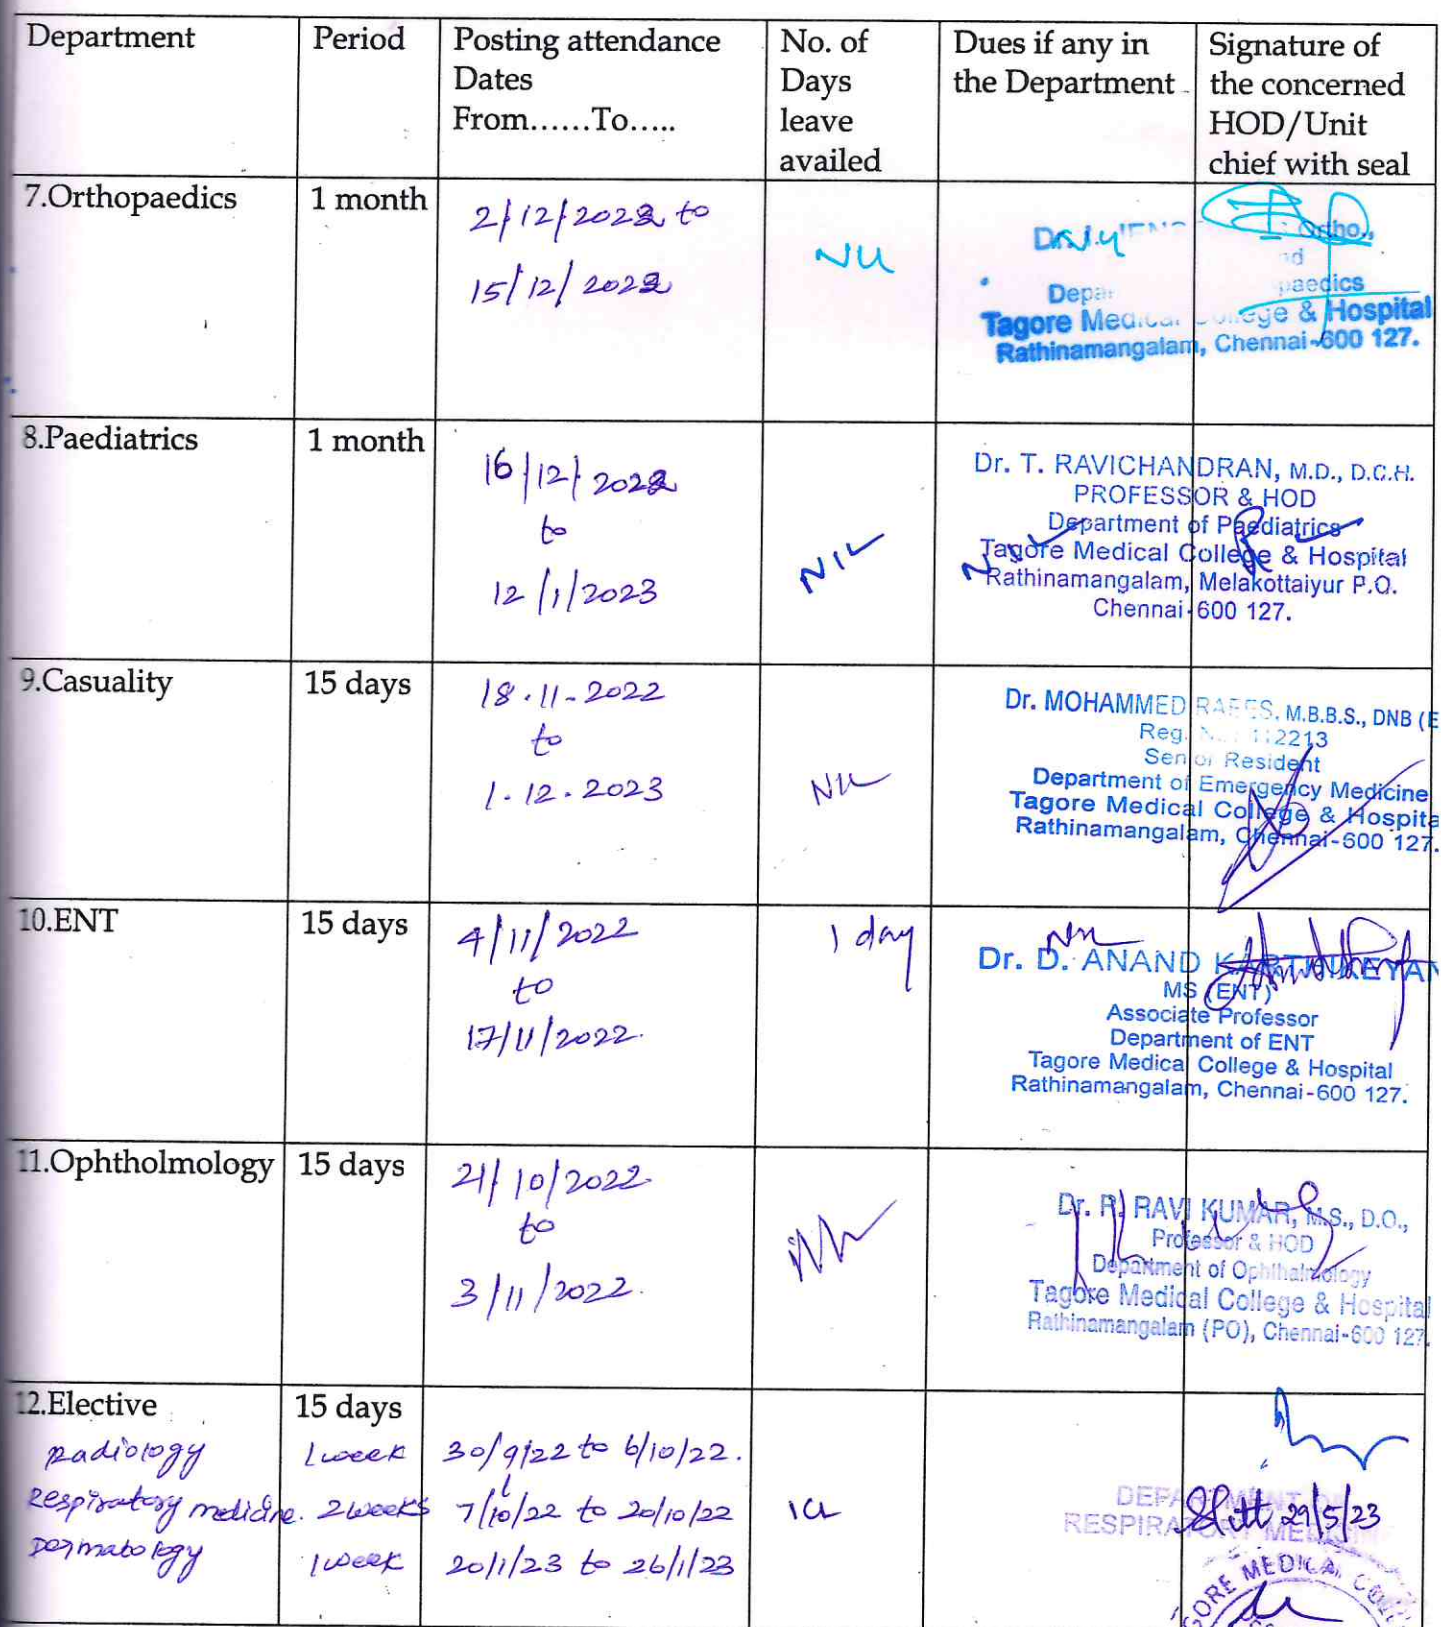 Department
Period
Posting attendance
Dates
From......To.....
No. of
Days
leave
availed
Dues if any in
the Department
Signature of
the concerned
HOD/Unit
chief with seal
7.Orthopaedics
1 month
2/12/2022 to
15/12/2022
Nil
Ortho.,
paedics
Tagore Medical College & Hospital
Rathinamangalam, Chennai-600 127.
8.Paediatrics
1 month
16/12/2022
to
12/1/2023
NIL
NIL
Dr. T. RAVICHANDRAN, M.D., D.C.H.
PROFESSOR & HOD
Department of Paediatrics
Tagore Medical College & Hospital
Rathinamangalam, Melakottaiyur P.O.
Chennai-600 127.
9.Casuality
15 days
18.11-2022
to
1.12.2023
Nil
Dr. MOHAMMED RAFES, M.B.B.S., DNB (E
Reg. No: 112213
Senior Resident
Department of Emergency Medicine
Tagore Medical College & Hospita
Rathinamangalam, Chennai-600 127.
10.ENT
15 days
4/11/2022
to
17/11/2022.
1 day
Nil
Dr. D. ANAND KARTHIKEYAN
MS (ENT)
Associate Professor
Department of ENT
Tagore Medical College & Hospital
Rathinamangalam, Chennai-600 127.
11.Ophtholmology
15 days
21/10/2022.
to
3/11/2022.
Dr. R. RAVI KUMAR, M.S., D.O.,
Professor & HOD
Department of Ophthalmology
Tagore Medical College & Hospital
Rathinamangalam (PO), Chennai-600 127.
12.Elective
15 days
Radiology
1 week
30/9/22 to 6/10/22.
Respiratory medicine.
2 weeks
7/10/22 to 20/10/22
1CL
DEPARTMENT OF
RESPIRATORY MEDICINE
29/5/23
Dermatology
1 week
20/1/23 to 26/1/23
TAGORE MEDICAL COLL